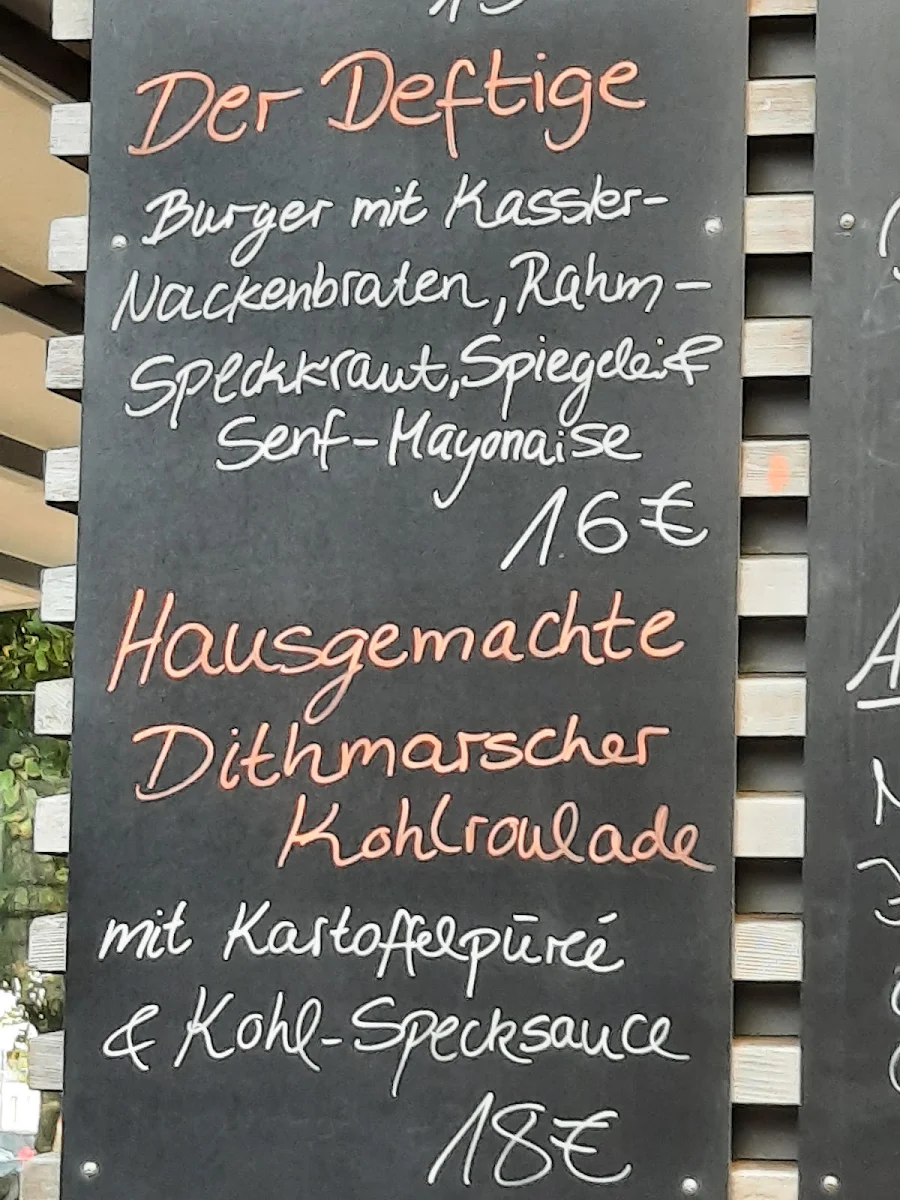 Der Deftige
Burger mit Kassler-
Nackenbraten, Rahm-
Speckkraut, Spiegelei &
Senf-Mayonaise
16€
Hausgemachte
Dithmarscher
Kohlroulade
mit Kartoffelpüreé
& Kohl-Specksauce
18€